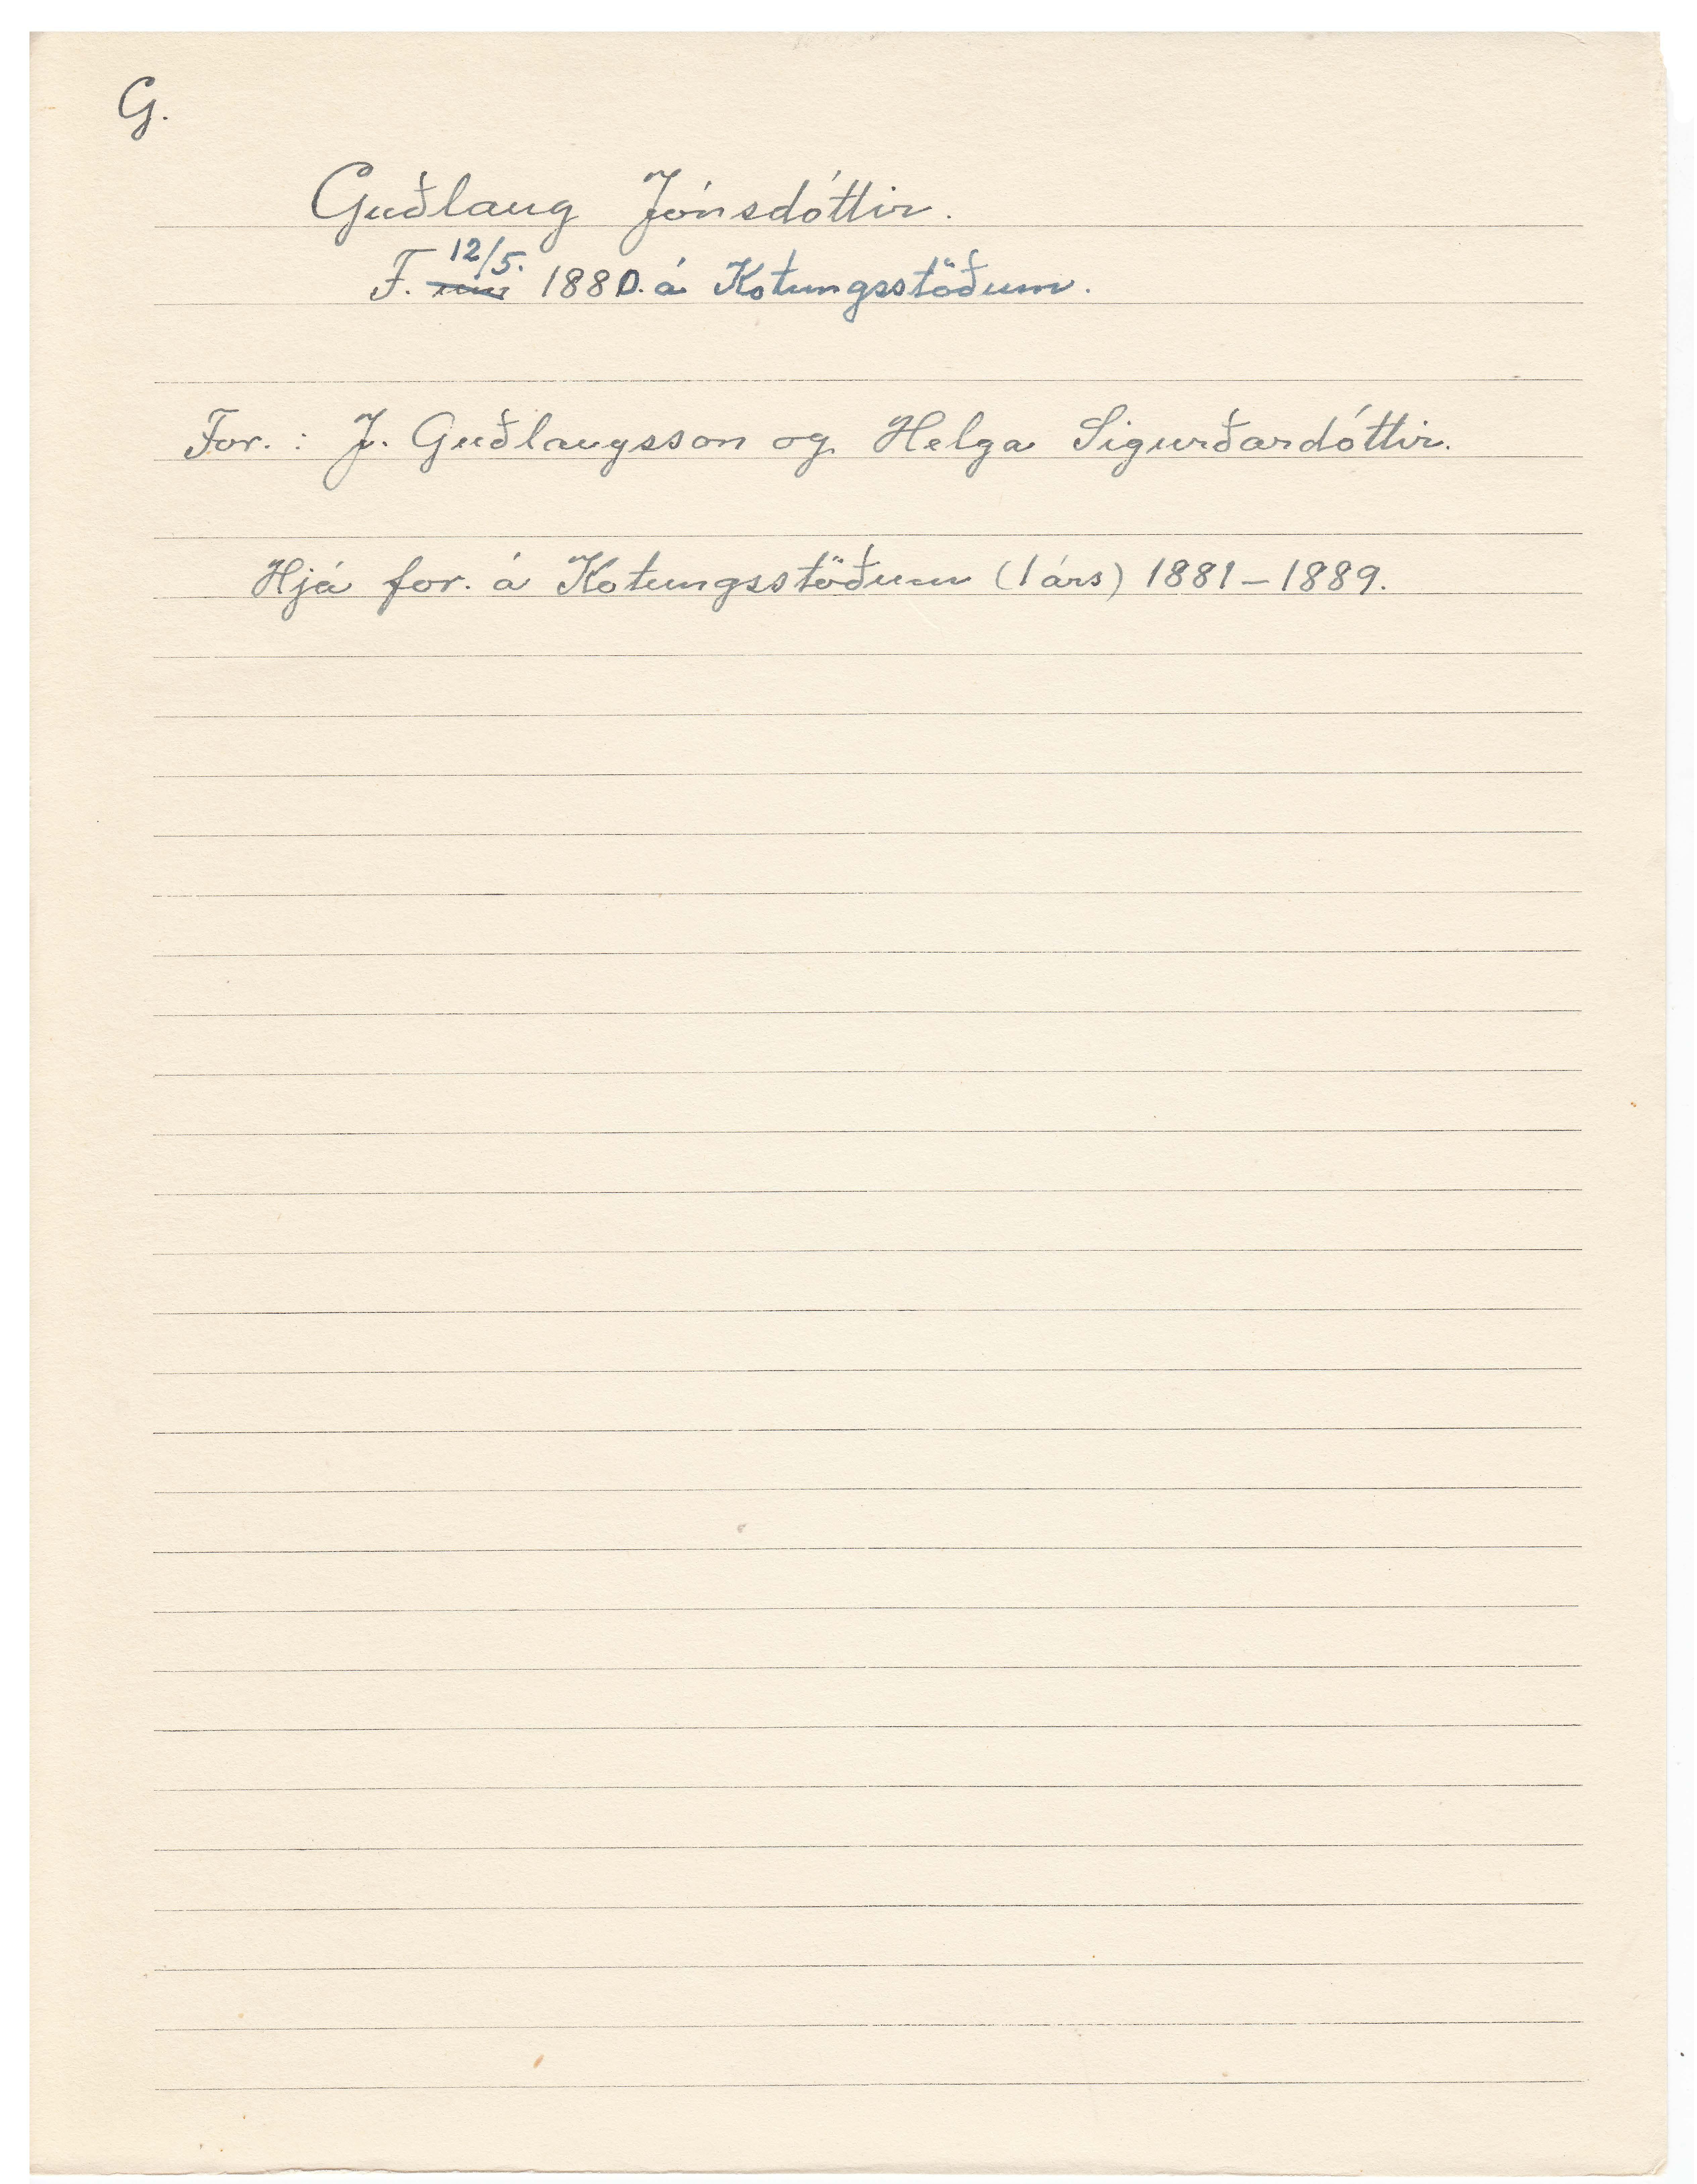 G.
Guðlaug Jónsdóttir.
F. 12/5. 1880. á Kotungsstöðum.
For. : J. Guðlaugsson og Helga Sigurðardóttir.
Hjá for. á Kotungsstöðum (1 árs) 1881-1889.